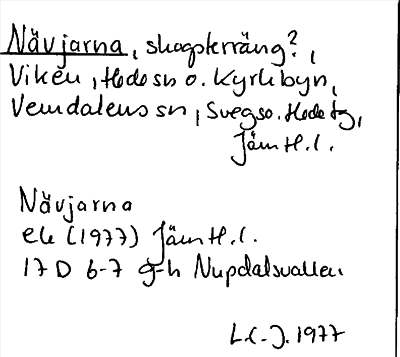 Nävjarna, skogsterräng?,
Viken, Hede sn o. Kyrkbyn,
Vemdalens sn, Svegs o. Hede tg,
Jämtl. l.
Nävjarna
ek (1977) Jämtl. l.
17 D 6-7 g-h Nupdalsvallen
L.C-J. 1977